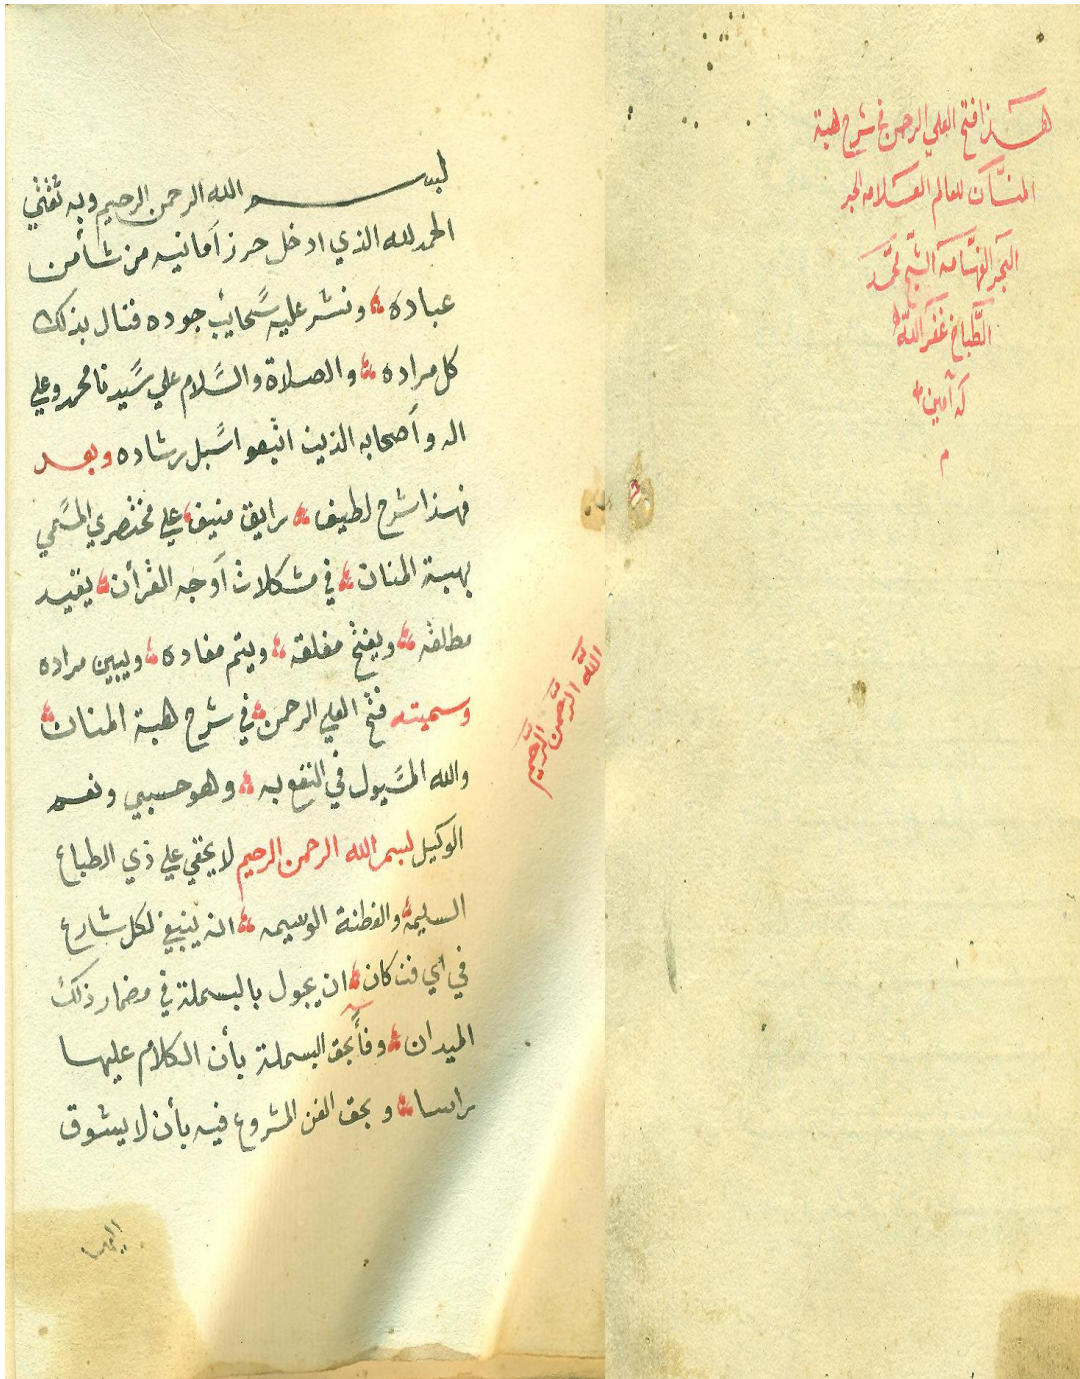 هذا فتح العلي الرحمن في شرح هبة
المنّان للعالم العلامه الحبر
البحر الفهّامه الشّيخ محمّد
الطّباخ غفر اللّه
له آمين
م
بسم الله الرحمن الرحيم وبه ثقتي
الحمد لله الذي ادخل حرز أمانيه من شأمن
عباده ونشر عليه سحائب جوده فنال بذلك
كل مراده والصلاة والسّلام علي سيدنا محمد وعلي
اله وأصحابه الذين اتبعوا سبل رشاده وبعد
فهذا شرح لطيف رايق منيف علي مختصري المسمي
بهبة المنان في مشكلات أوجه القرأن يقيد
مطلقه ويفتح مغلقه ويتم مفاده ويبين مراده
وسميته فتح العلي الرحمن في شرح هبة المنان
والله المسيول في النفع به وهو حسبي ونعم
الوكيل بسم الله الرحمن الرحيم لا يخفي علي ذي الطباع
السليمه والفطنة الوسيمه انه ينبغي لكل شارع
في اي فن كان ان يجول بالبسملة في مضمار ذلك
الميدان وفأ بحق البسملة بأن الكلام عليها
راسا وبحق الفن المشروع فيه بأن لا يسوق
اللّه الرّحمن الرّحيم
اليها